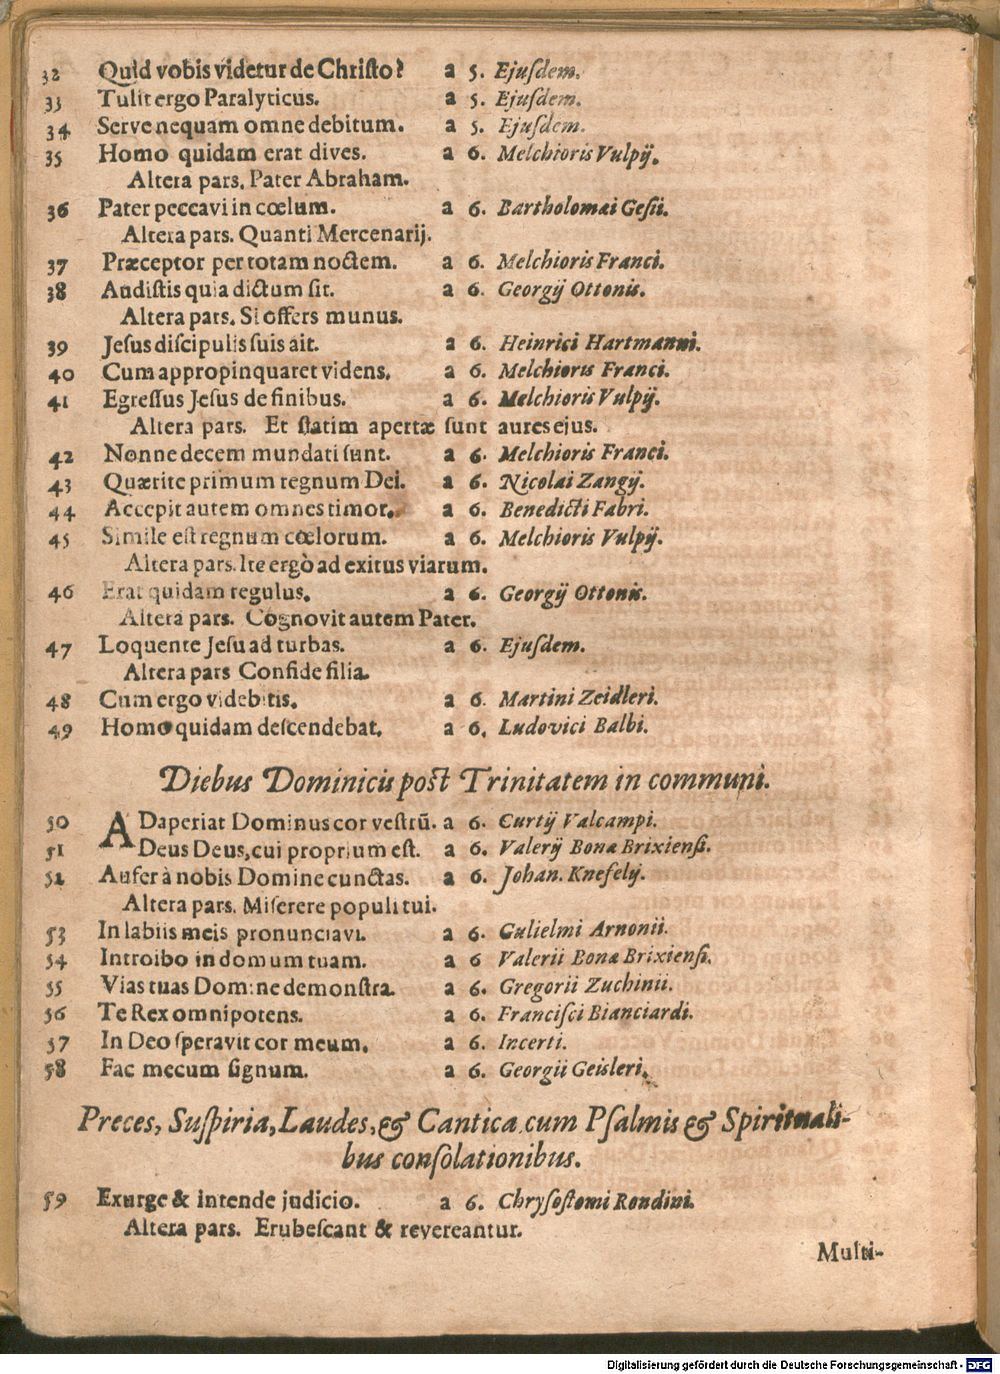 32 Quid vobis videtur de Christo? a 5. Ejusdem.
33 Tulit ergo Paralyticus. a 5. Ejusdem.
34 Serve nequam omne debitum. a 5. Ejusdem.
35 Homo quidam erat dives. a 6. Melchioris Vulpij.
Altera pars. Pater Abraham.
36 Pater peccavi in cœlum. a 6. Bartholomæi Gesii.
Altera pars. Quanti Mercenarij.
37 Præceptor per totam noctem. a 6. Melchioris Franci.
38 Audistis quia dictum sit. a 6. Georgij Ottonis.
Altera pars. Si offers munus.
39 Jesus discipulis suis ait. a 6. Heinrici Hartmanni.
40 Cum appropinquaret videns. a 6. Melchioris Franci.
41 Egressus Jesus de finibus. a 6. Melchioris Vulpij.
Altera pars. Et statim apertæ sunt aures ejus.
42 Nonne decem mundati sunt. a 6. Melchioris Franci.
43 Quærite primum regnum Dei. a 6. Nicolai Zangij.
44 Accepit autem omnes timor. a 6. Benedicti Fabri.
45 Simile est regnum cœlorum. a 6. Melchioris Vulpij.
Altera pars. Ite ergò ad exitus viarum.
46 Erat quidam regulus. a 6. Georgij Ottonis.
Altera pars. Cognovit autem Pater.
47 Loquente Jesu ad turbas. a 6. Ejusdem.
Altera pars Confide filia.
48 Cum ergo videbitis. a 6. Martini Zeidleri.
49 Homo quidam descendebat. a 6. Ludovici Balbi.
Diebus Dominicis post Trinitatem in communi.
50 ADaperiat Dominus cor vestrũ. a 6. Curtij Valcampi.
51 Deus Deus, cui proprium est. a 6. Valerij Bonæ Brixiensi.
52 Aufer à nobis Domine cunctas. a 6. Johan. Knefelij.
Altera pars. Miserere populi tui.
53 In labiis meis pronunciavi. a 6. Gulielmi Arnonii.
54 Introibo in domum tuam. a 6 Valerii Bonæ Brixiensi.
55 Vias tuas Domine demonstra. a 6. Gregorii Zuchinii.
56 Te Rex omnipotens. a 6. Francisci Bianciardi.
57 In Deo speravit cor meum. a 6. Incerti.
58 Fac mecum signum. a 6. Georgii Geisleri.
Preces, Suspiria, Laudes, & Cantica cum Psalmis & Spirituali-
bus consolationibus.
59 Exurge & intende judicio. a 6. Chrysostomi Rondini.
Altera pars. Erubescant & revereantur.
Multi-
Digitalisierung gefördert durch die Deutsche Forschungsgemeinschaft - DFG